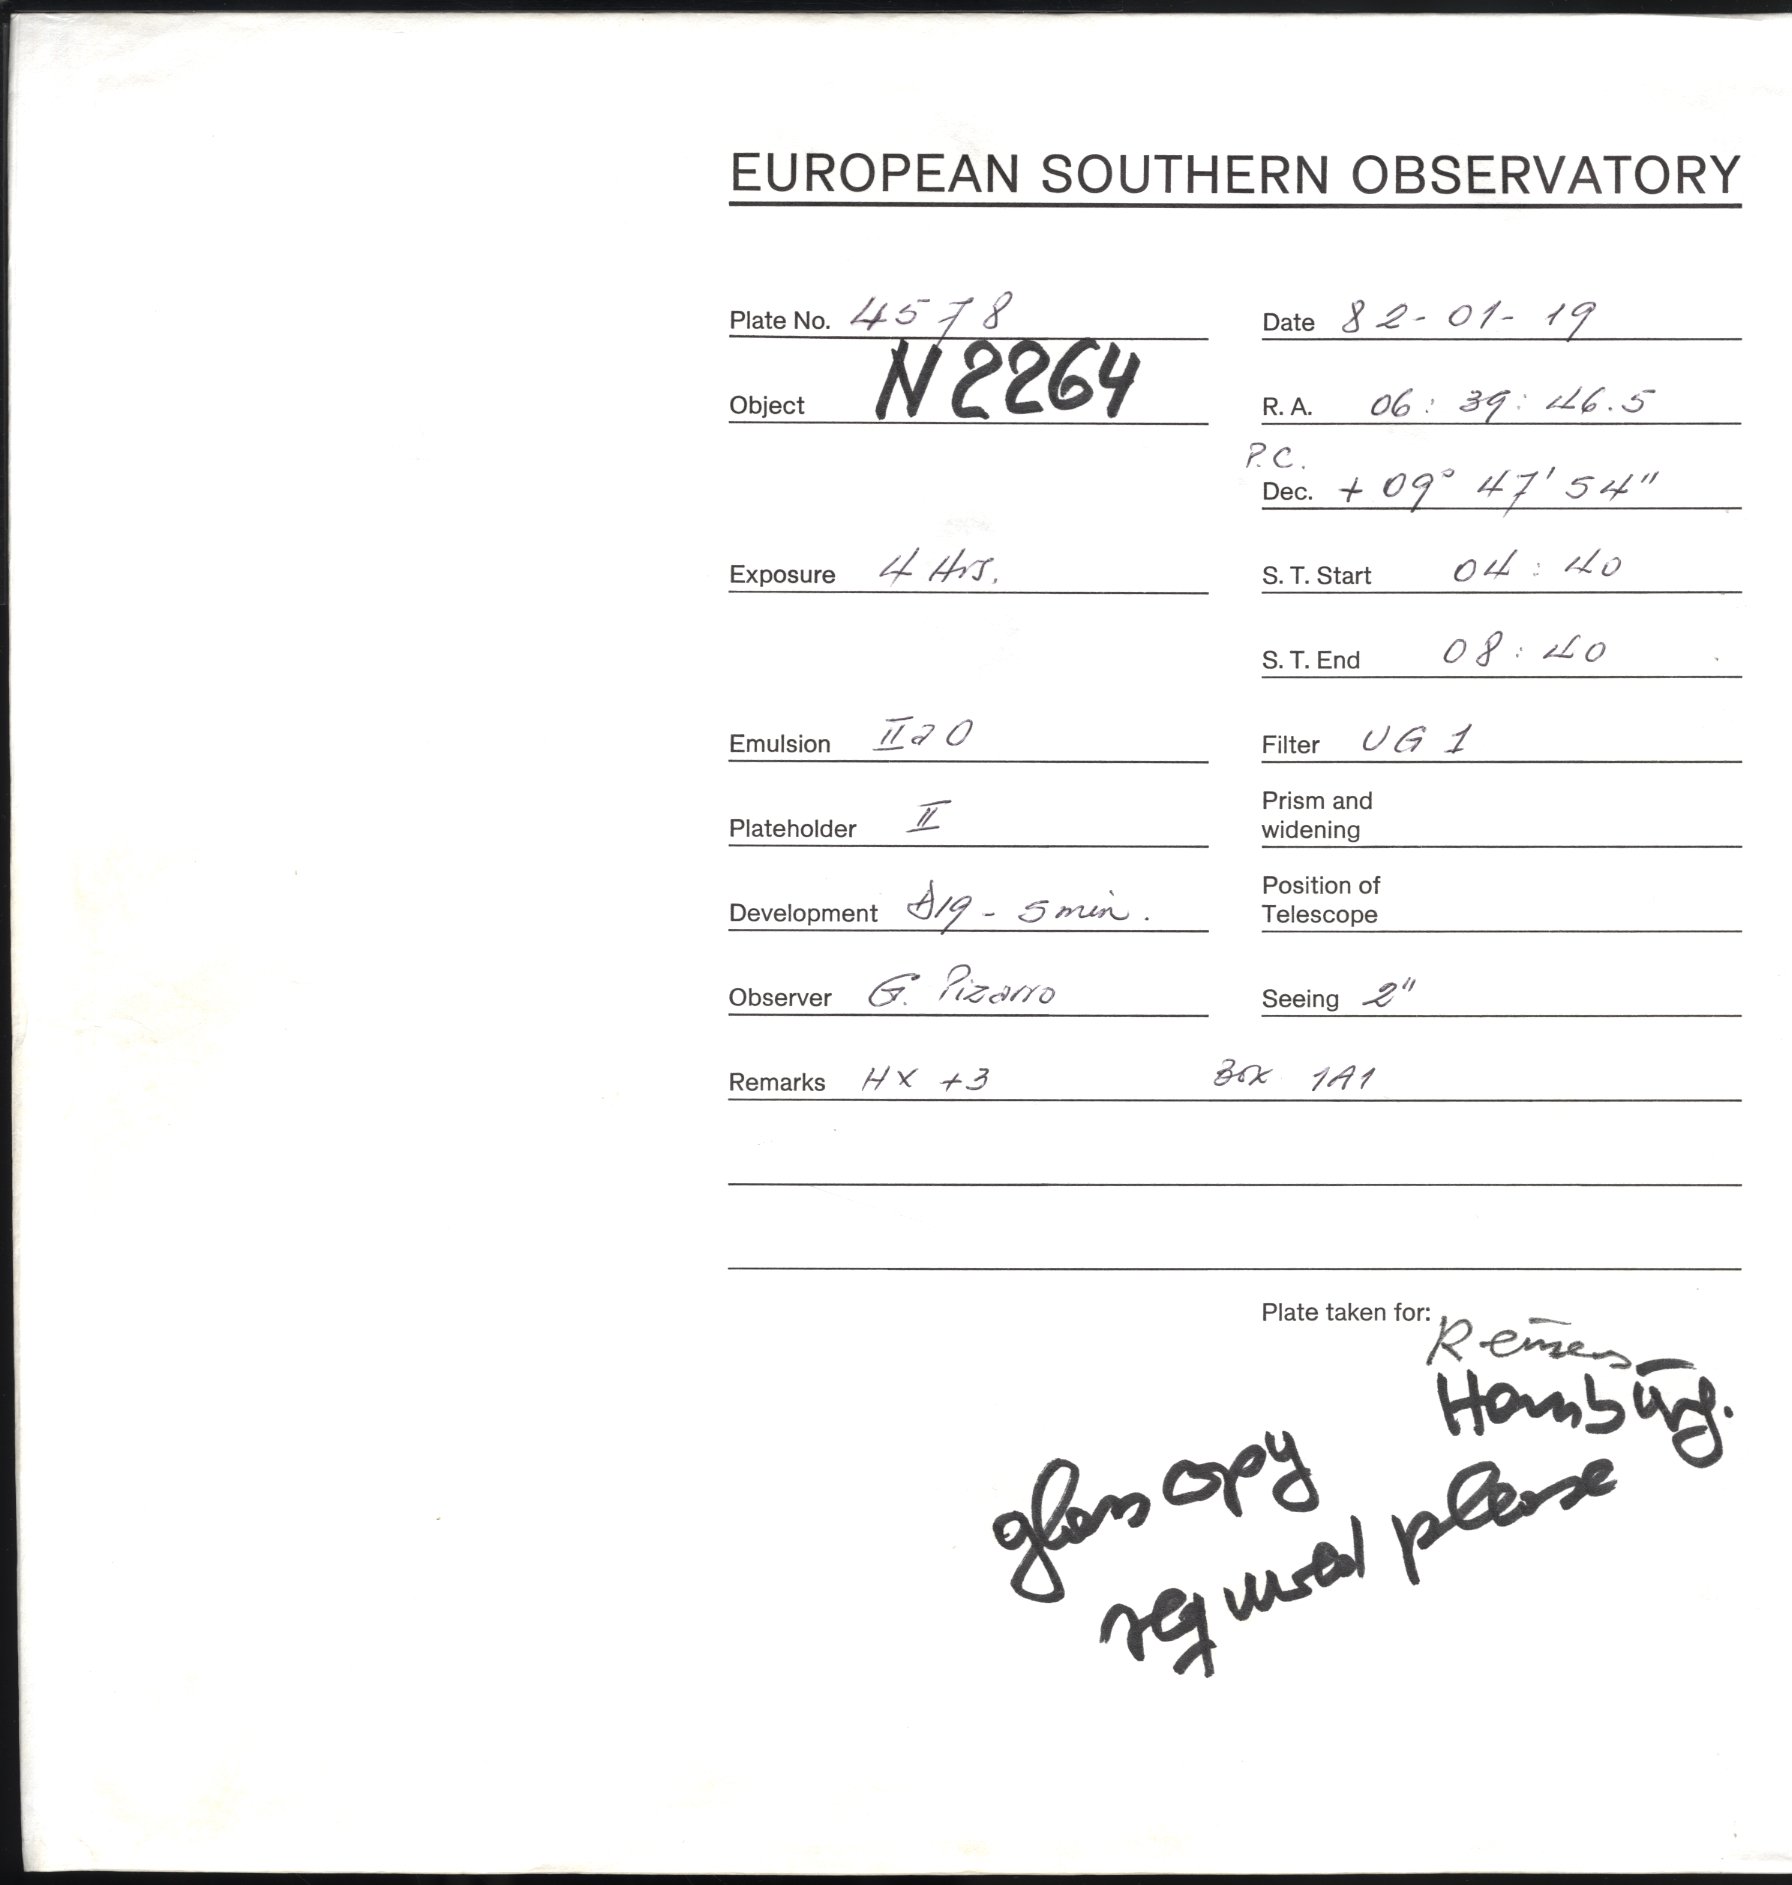 EUROPEAN SOUTHERN OBSERVATORY
Plate No. 4578 Date 82-01-19
Object N2264 R. A. 06: 39: 46.5
P.C.
Dec. + 09° 47' 54"
Exposure 4 Hrs. S. T. Start 04: 40
S. T. End 08: 40
Emulsion IIaO Filter UG 1
Plateholder II Prism and
widening
Development D19 - 5 min. Position of
Telescope
Observer G. Pizarro Seeing 2"
Remarks HX +3 Box 1A1
Plate taken for:
Hamburg.
glass copy
required please